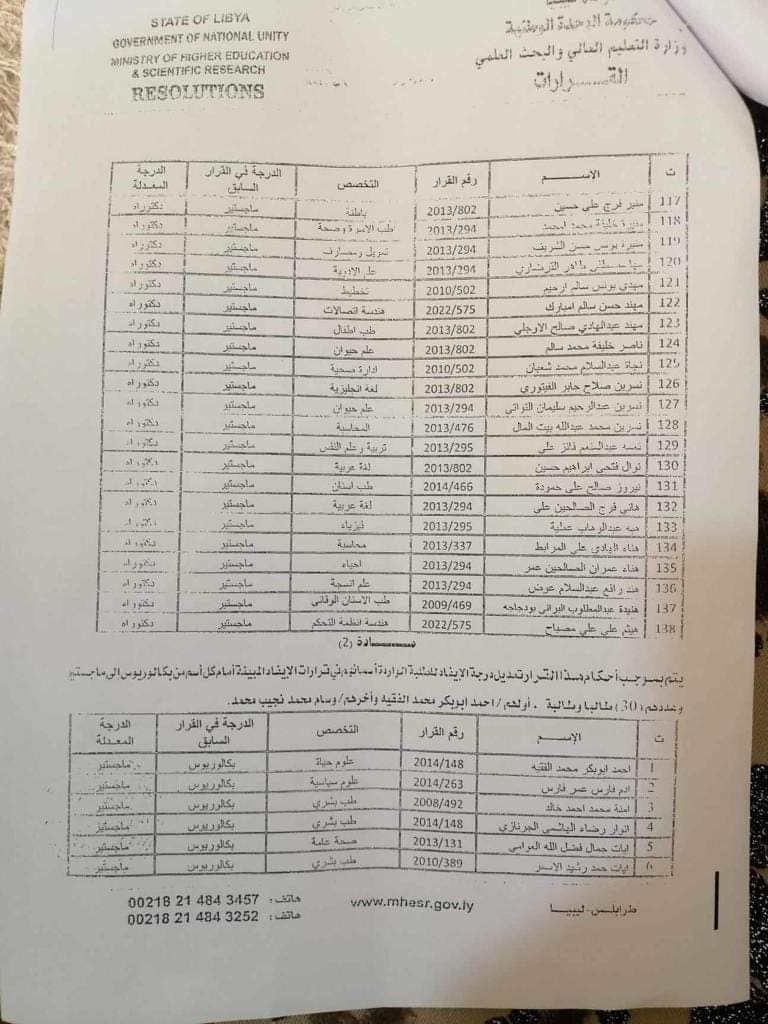 STATE OF LIBYA
GOVERNMENT OF NATIONAL UNITY
MINISTRY OF HIGHER EDUCATION
& SCIENTIFIC RESEARCH
RESOLUTIONS
حكومة الوحدة الوطنية
وزارة التعليم العالي والبحث العلمي
القـــــرارات
ت الاســـم رقم القرار التخصص الدرجة في القرار السابق الدرجة المعدلة
117 منير فرج علي حسين 2013/802 باطنة ماجستير دكتوراه
118 منيرة خليفة محمد امحمد 2013/294 طب الاسرة وصحة ماجستير دكتوراه
119 منيرة يونس حسن الشريف 2013/294 تمويل ومصارف ماجستير دكتوراه
120 مصطفى طاهر 2013/294 علم الادوية ماجستير دكتوراه
121 مهدي يونس سالم ارحيم 2010/502 تخطيط ماجستير دكتوراه
122 مهند حسن سالم امبارك 2022/575 هندسة اتصالات ماجستير دكتوراه
123 مهند عبدالهادي صالح الاوجلي 2013/802 طب اطفال ماجستير دكتوراه
124 ناصر خليفة محمد سالم 2013/802 علم حيوان ماجستير دكتوراه
125 نجاة عبدالسلام محمد شعبان 2010/502 ادارة صحية ماجستير دكتوراه
126 نسرين صلاح جابر الفيتوري 2013/802 لغة انجليزية ماجستير دكتوراه
127 نسرين عبدالرحيم سليمان التواتي 2013/294 علم حيوان ماجستير دكتوراه
128 نسرين محمد عبدالله بيت المال 2013/476 المحاسبة ماجستير دكتوراه
129 عبدالمنعم فائز علي 2013/295 تربية وعلم النفس ماجستير دكتوراه
130 نوال فتحي ابراهيم حسين 2013/802 لغة عربية ماجستير دكتوراه
131 نيروز صالح علي حمودة 2014/466 طب اسنان ماجستير دكتوراه
132 هاني فرج الصالحين علي 2013/294 لغة عربية ماجستير دكتوراه
133 هبه عبدالوهاب عطية 2013/295 فيزياء ماجستير دكتوراه
134 هناء الهادي علي المرابط 2013/337 محاسبة ماجستير دكتوراه
135 هناء عمران الصالحين عمر 2013/294 احياء ماجستير دكتوراه
136 هند رافع عبدالسلام عوض 2013/294 علم انسجة ماجستير دكتوراه
137 هنيدة عبدالمطلوب البراني بودجاجه 2009/469 طب الاسنان الوقائي ماجستير دكتوراه
138 هيثم علي علي مصباح 2022/575 هندسة انظمة التحكم ماجستير دكتوراه
مـــــادة (2)
يتم بموجب أحكام هذا القرار تعديل درجة الإيفاد للطلبة الواردة أسمائهم في قرارات الإيفاد المبينة أمام كل أسم من بكالوريوس الى ماجستير
وعددهم (30) طالبا وطالبة . أولهم / احمد ابوبكر محمد الفقيه وأخرهم/ وسام محمد نجيب محمد.
ت الإســـم رقم القرار التخصص الدرجة في القرار السابق الدرجة المعدلة
1 احمد ابوبكر محمد الفقيه 2014/148 علوم حياة بكالوريوس ماجستير
2 ادم فارس عمر فارس 2014/263 علوم سياسية بكالوريوس ماجستير
3 امنة محمد احمد خالد 2008/492 طب بشري بكالوريوس ماجستير
4 انوار رضاء الهاشمي الجرنازي 2014/148 طب بشري بكالوريوس ماجستير
5 ايات جمال فضل الله العوامي 2013/131 صحة عامة بكالوريوس ماجستير
6 ايات حمد رشيد الاسمر 2010/389 طب بشري بكالوريوس ماجستير
طرابلس-ليبيا www.mhesr.gov.ly هاتف: 00218 21 484 3457
هاتف: 00218 21 484 3252